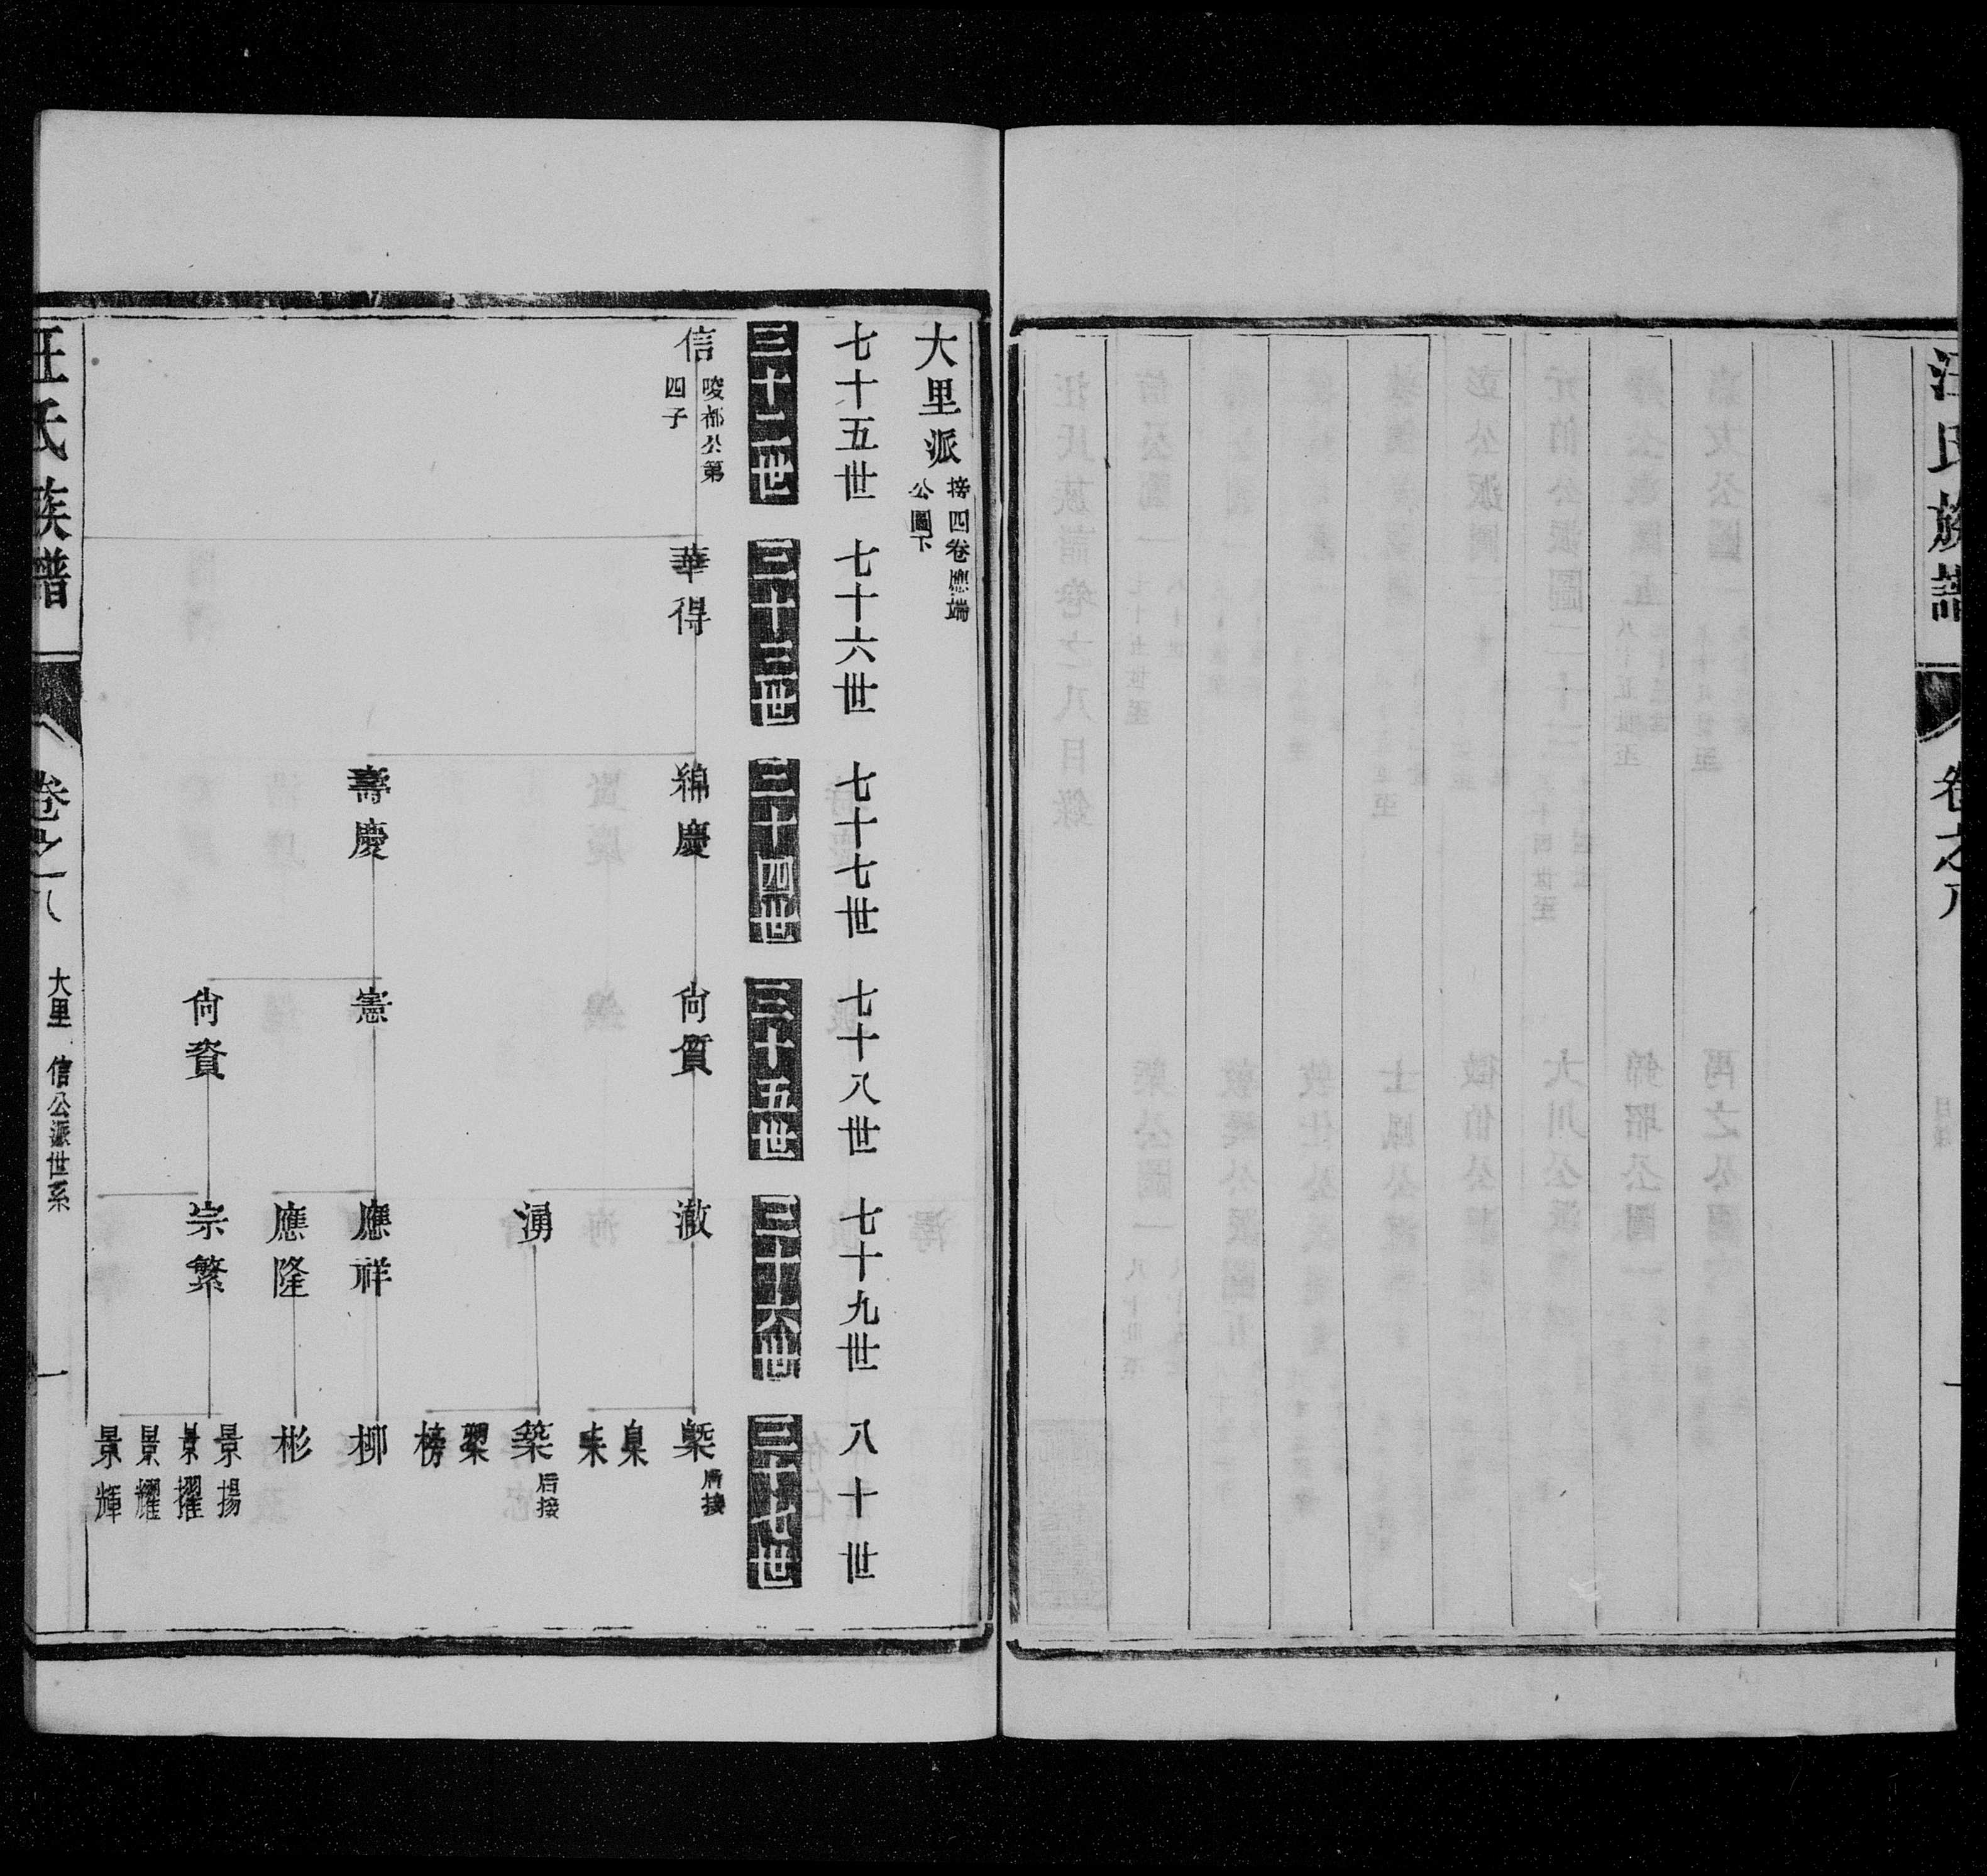 汪氏族譜
卷之八
一
大里派
接四卷
公圖下
七十五世
七十六世
七十七世
七十八世
七十九世
八十世
三十二世
三十三世
三十四世
三十五世
三十六世
三十七世
信
公第
四子
華得
綿慶
壽慶
尙質
憲
尙資
澈
湧
應祥
應隆
崇繁
槼 后接
臬
築 后接
榜
栁
彬
景揚
景擢
景耀
景輝
汪氏族譜
卷之八
大里 信公派世系
一